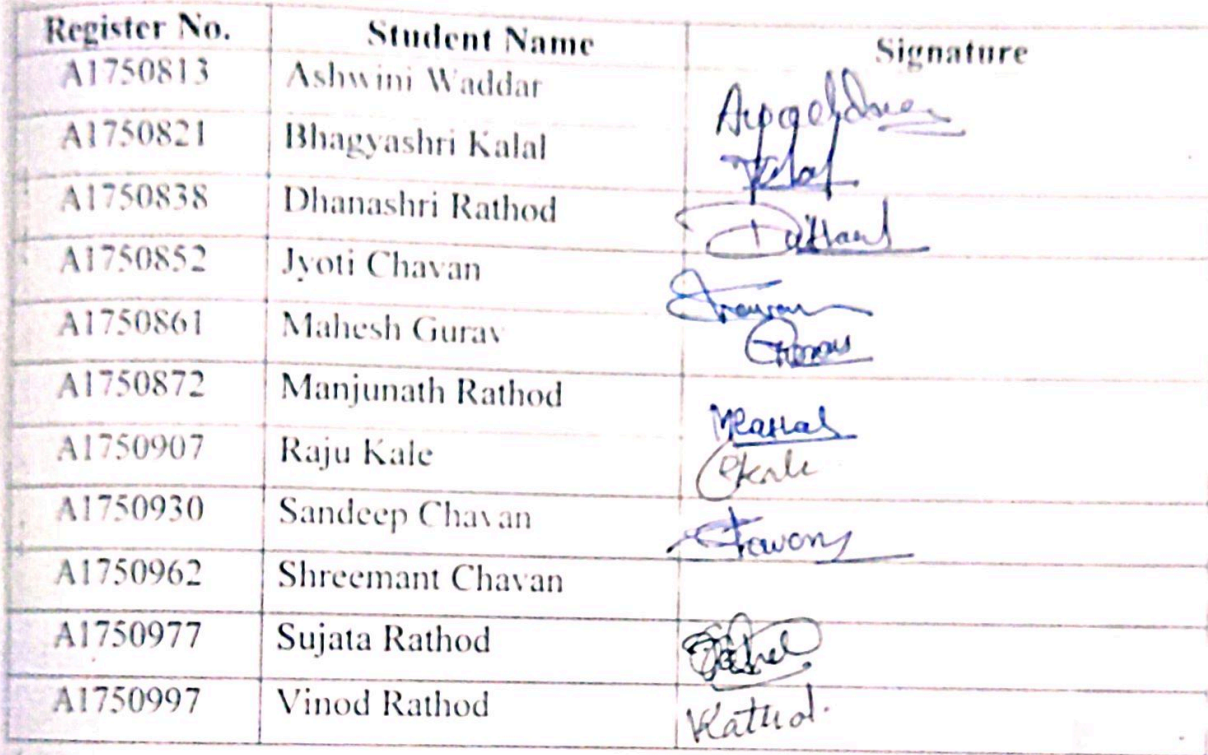 Register No. Student Name Signature
A1750813 Ashwini Waddar
A1750821 Bhagyashri Kalal Kalal
A1750838 Dhanashri Rathod
A1750852 Jyoti Chavan
A1750861 Mahesh Gurav
A1750872 Manjunath Rathod
A1750907 Raju Kale
A1750930 Sandeep Chavan
A1750962 Shreemant Chavan
A1750977 Sujata Rathod
A1750997 Vinod Rathod